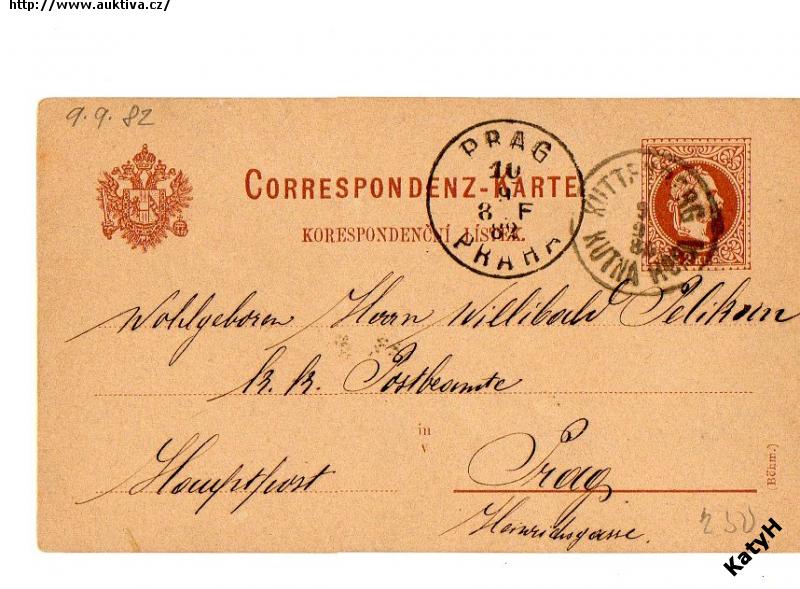 http://www.auktiva.cz/
9.9.82
CORRESPONDENZ-KARTE
KORESPONDENČNÍ LÍSTEK.
PRAG
10
9
8 F
82
PRAHA
KUTTENBERG
9
9
82
KUTNÁ HORA
Wohlgeboren Herrn Willibald Pelikan
k. k. Postbeamte
in
v
Hauptpost
Prag
Heinrichsgasse.
(Böhm.)
250
KatyH